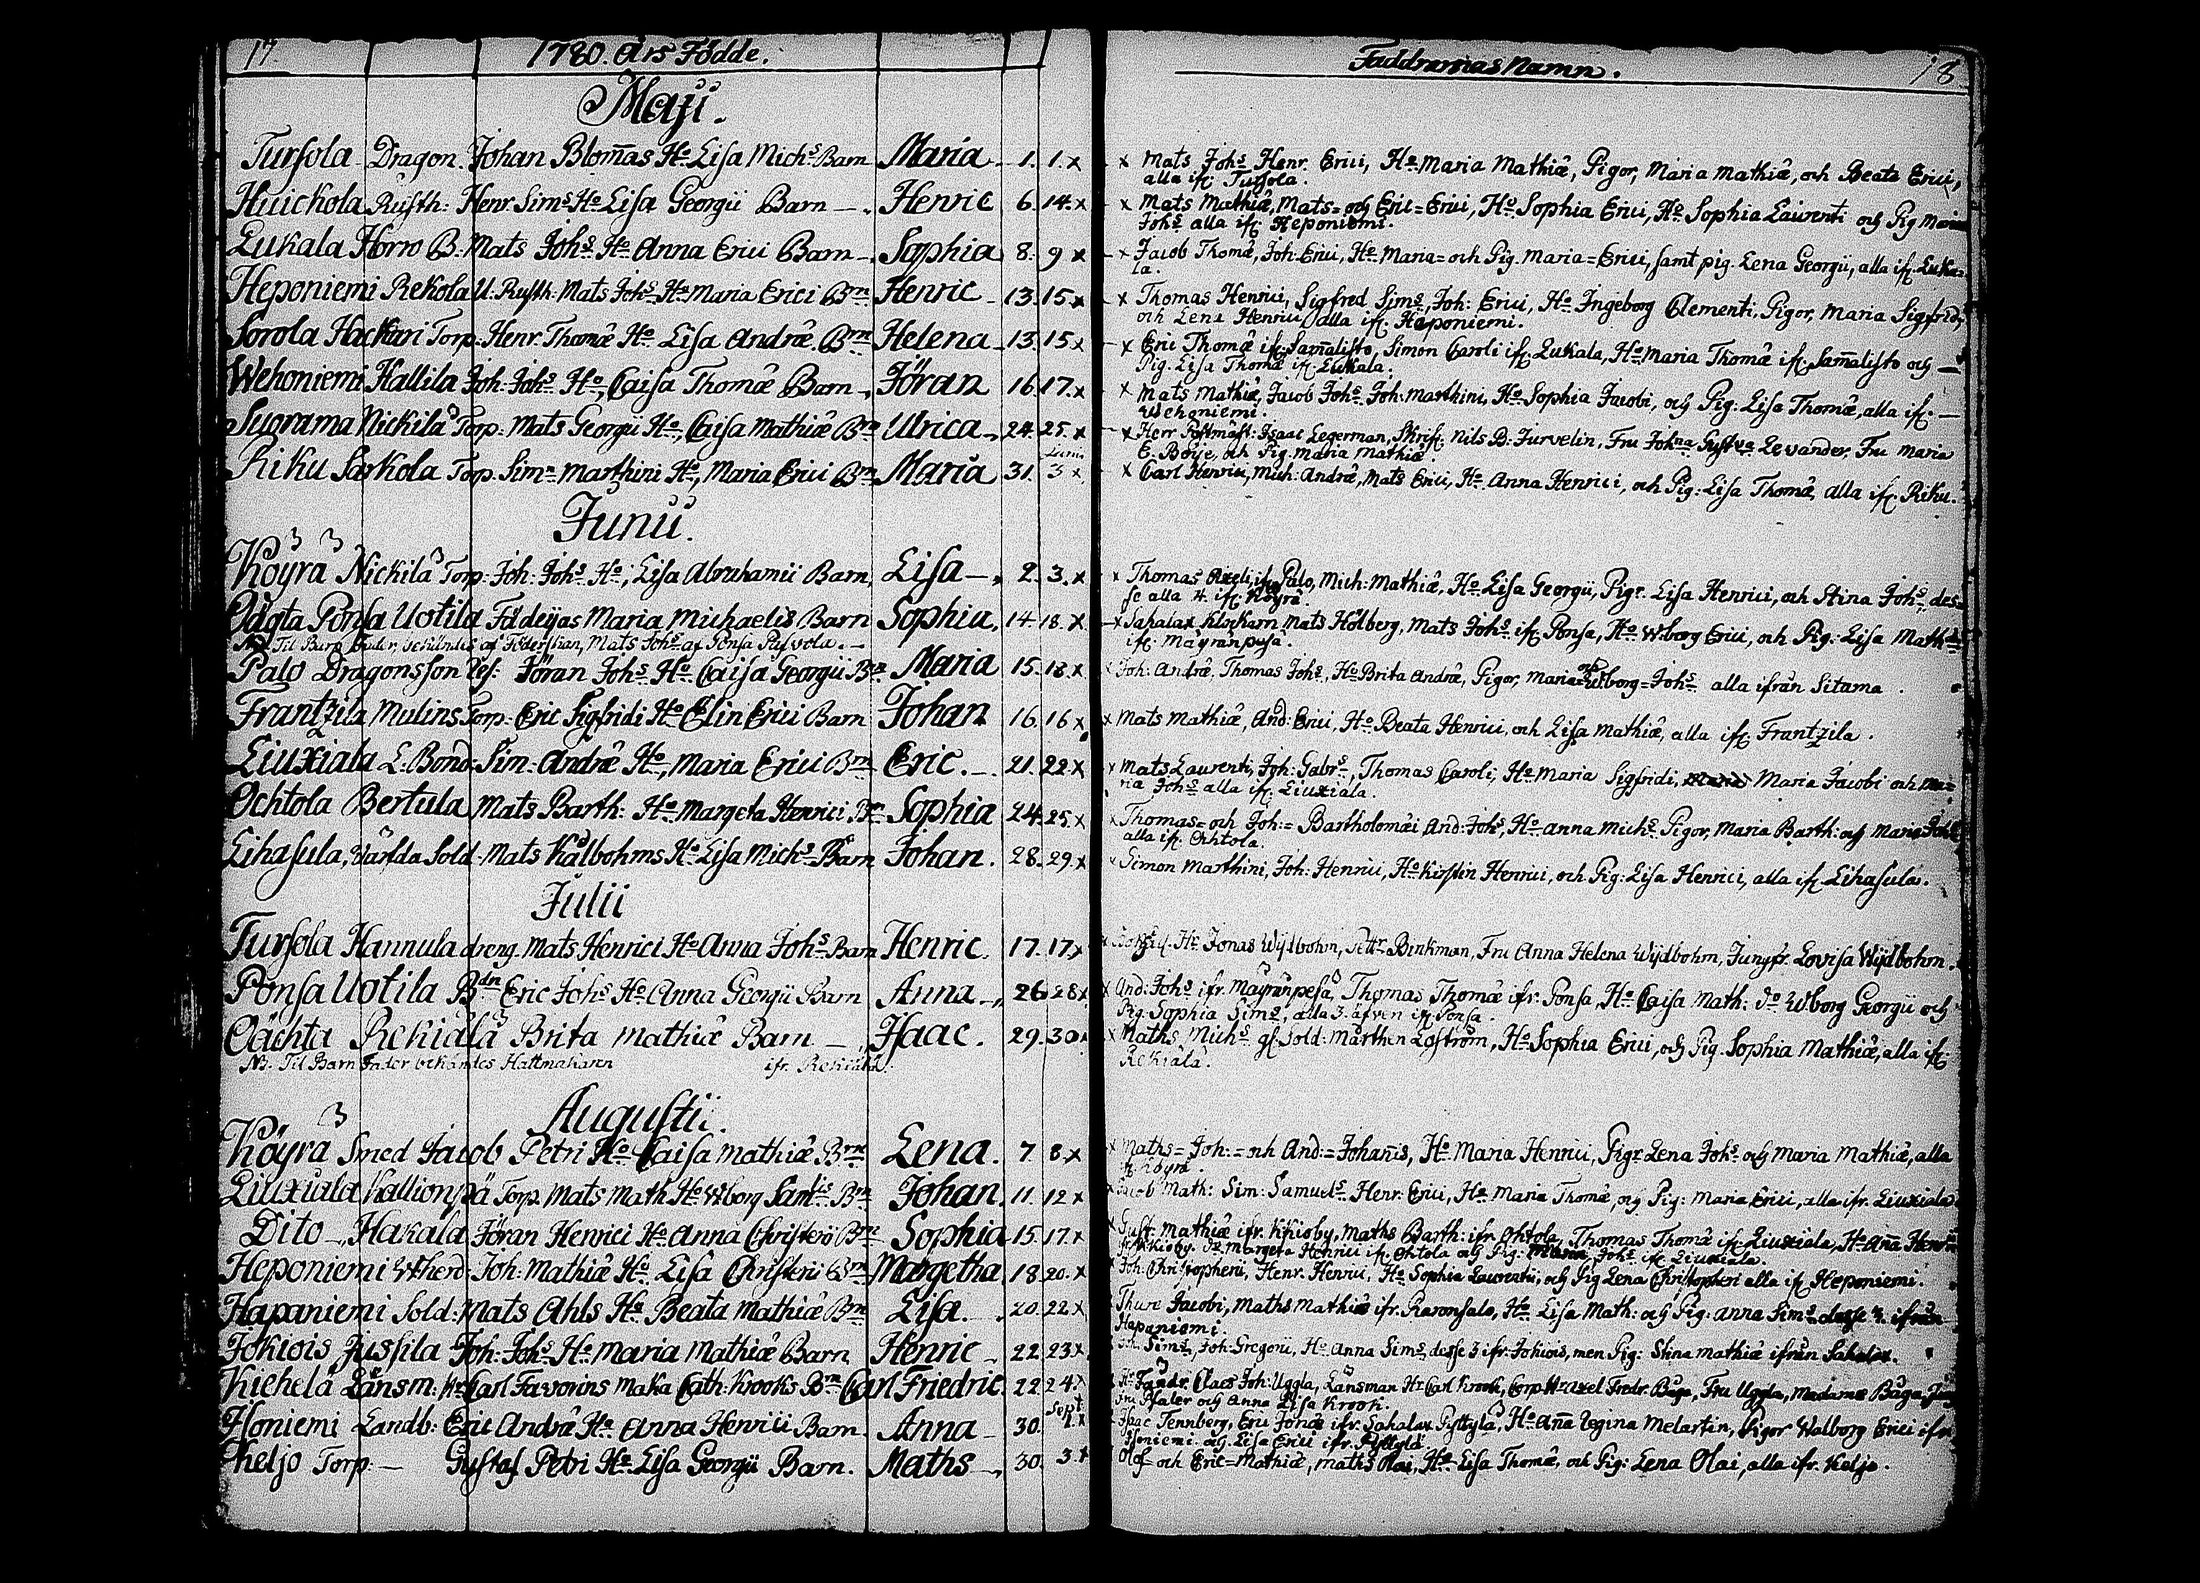 17.
1780. Års Födde.
Maji.
Tursola Dragon. Johan Blom̄as Ho Lisa Michs Barn Maria 1. 1. x
Huickola Rusth: Henr Sims Ho Lisa Georgii Barn Henric 6. 14. x
Lukala Horro B: Mats Johs Ho Anna Erici Barn Sophia 8. 9 x
Heponiemi Rekola U. Rusth: Mats Johs Ho Maria Erici Brn Henric 13. 15. x
Sorola Hackari Torp. Henr. Thomæ Ho Lisa Andræ Brn Helena 13. 15 x
Wehoniemi Hallila Joh: Johs Ho, Caisa Thomæ Barn Jöran 16. 17. x
Suorama Nickilä Torp: Mats Georgii Ho, Caisa Mathiæ Brn Ulrica 24. 25. x
Riku Sarkola Torp. Simn Marthini Ho, Maria Erici Brn Maria 31. Junii 3 x
Junii.
Köyrä Nickilä Torp: Joh: Johs Ho, Lisa Abrahamii Barn Lisa 2. 3. x
Ponsa Uotila Maria Michaelis Barn Sophia. 14 18. x
Til Barn Fader Mats Johs af Ponsa
Palo Dragonsson Jöran Johs Ho Caisa Georgii Brn Maria 15. 18. x
Frantzila Mulins Torp. Eric Sigfridi Ho Elin Erici Barn Johan 16. 16 x
Liuxiala L. Bond. Sim. Andræ Ho, Maria Erici Brn Eric. 21. 22. x
Ochtola Bertula Mats Barth: Ho Margeta Henrici Brn Sophia 24. 25. x
Lihasula, Sold. Mats Kålbohms Ho Lisa Michs Barn Johan. 28. 29. x
Julii
Tursola Hannula dreng. Mats Henrici Ho Anna Johs Barn Henric. 17. 17. x
Ponsa Uotila Bdn Eric Johs Ho Anna Georgii Barn Anna 26. 28 x
Oächta Rekiälä Brita Mathiæ Barn Isaac. 29. 30.
NB. Til Barn Fader bekändes Hallmakaren ifr. Rekiälä.
Augusti.
Köyrä Smed Jacob Petri Ho Caisa Mathiæ Brn Lena. 7 8. x
Liuxiala Kallionpä Torp. Mats Math Ho Wborg Brn Johan. 11. 12 x
Dito Hakala Jöran Henrici Ho Anna Christerii Brn Sophia 15. 17. x
Heponiemi Joh: Mathiæ Ho Lisa Christerii Brn Margetha 18. 20. x
Hapaniemi Sold: Mats Ahls Ho Beata Mathiæ Brn Lisa. 20. 22 x
Jokiois Jussila Joh: Johs Ho Maria Mathiæ Barn Henric 22. 23 x
Kiehelä Länsm: Hr Carl Favorins Maka Cath: Krooks Brn Carl Friedric 22. 24. x
Isoniemi Landb: Eric Andræ Ho Anna Henrici Barn. Anna 30. Sept.
Keljo Torp: Gustaf Petri Ho Lisa Georgii Barn. Maths 30. 3.
Faddrarnas Namn. 18
x Mats Johs Henr. Erici, Ho Maria Mathiæ, Pigor, Maria Mathiæ, och Beata Erici,
alla ifr. Tursola.
x Mats Mathiæ, Mats= och Eric=Erici, Ho Sophia Erici, Ho Sophia Laurenti och Pig Maria
Johs alla ifr. Heponiemi.
x Jacob Thomæ, Joh: Erici, Ho Maria= och Pig. Maria=Erici, samt pig. Lena Georgii, alla ifr. Luka=
la.
x Thomas Henrici, Sigfred Sims, Joh: Erici, Ho Ingeborg Clementi, Pigor, Maria Sigfridi,
och Lena Henrici, alla ifr. Heponiemi.
x Eric Thomæ ifr. Sam̄alisto, Simon Caroli ifr. Lukala, Ho Maria Thomæ ifr. Sam̄alisto och
Pig. Lisa Thomæ ifr. Lukala.
x Mats Mathiæ, Jacob Johs Joh: Marthini, Ho Sophia Jacobi, och Pig: Lisa Thomæ, alla ifr.
Wehoniemi.
x Herr Isaac Legerman, Skrifv: Nils B: Furvelin, Fru Johna Gustva Levander, Fru Maria
E. Boije, och Pig. Maria Mathiæ.
x Carl Henrici, Mich: Andræ, Mats Erici, Ho Anna Henrici, och Pig: Lisa Thomæ, alla ifr. Riku.
x Thomas Axeli ifr. Palo, Mich: Mathiæ, Ho Lisa Georgii, Pigr. Lisa Henrici, och Stina Johs, des=
se alla 4. ifr. Köyrä.
x Sahalax Klockarn Mats Hölberg, Mats Johs ifr. Ponsa, Ho Wborg Erici, och Pig: Lisa
ifr. Mäyränpesä.
x Joh: Andræ, Thomas Johs, Ho Brita Andræ, Pigor, Maria= och Wborg=Johs alla ifrån Sitama.
x Mats Mathiæ, And: Erici, Ho Beata Henrici, och Lisa Mathiæ, alla ifr. Frantzila.
x Mats Laurenti, Joh: Gabrs, Thomas Caroli, Ho Maria Sigfridi, Maria Jacobi och Ma=
ria Johs alla ifr. Liuxiala.
x Thomas= och Joh:= Bartholomæi And: Johs, Ho Anna Michs Pigor, Maria Barth: och Maria
alla ifr. Ochtola.
x Simon Marthini, Joh: Henrici, Ho Kirstin Henrici, och Pig: Lisa Henrici, alla ifr. Lihasula.
x Hr Jonas Wijdbohm, Brinkman, Fru Anna Helena Wijdbohm, Jungfr. Lovisa Wijdbohm.
x And: Johs ifr. Mäyränpesä, Thomas Thomæ ifr. Ponsa, Ho Caisa Math: Do Wborg Georgii och
Pig. Sophia Sims, alla 3. äfven ifr. Ponsa.
x Maths Michs gl. Sold: Mårthen Legström, Ho Sophia Erici, och Pig. Sophia Mathiæ, alla ifr.
Rekiälä.
x Maths= Joh:= och And:=Johanis, Ho Maria Henrici, Pigr Lena Johs och Maria Mathiæ, alla
ifr. Köyrä.
Jacob Math: Sim: Samuels Henr: Erici, Ho Maria Thomæ, och Pig: Maria Erici, alla ifr. Liuxiala
x Gust: Mathiæ ifr. Maths Barth: ifr. Ohtola, Thomas Thomæ ifr. Liuxiala, Ho Anna
Do Margeta Henrici ifr. Ohtola och Pig: Johs ifr. Liuxiala.
Joh: Christopherii, Henr. Henrici, Ho Sophia Laurentii, och Pig Lena Christopheri alla ifr. Heponiemi.
Thure Jacobi, Maths Mathiæ ifr. Ho Lisa Math: och Pig: Anna Sims desse ifrån
Hapaniemi.
Sims, Joh: Gregorii, Ho Anna Sims, desse 3 ifr. Jokiois, men Pig: Stina Mathiæ ifrån Sahalax.
Claes Joh: Uggla, Länsman Hr Carl Krook, Axel Fredr. Båga, Fru Uggla, Madame Båga,
Pfaler och Anna Lisa Krook.
Isac Tennberg, Eric Jonæ ifr. Sahalax Pyttylä, Ho Ana Regina Melartin, Pigor Walborg Erici ifr.
Isoniemi och Lisa Erici ifr. Pyttylä.
Olof= och Eric=Mathiæ, Maths Olai, Ho Lisa Thomæ, och Pig: Lena Olai, alla ifr. Keljo.